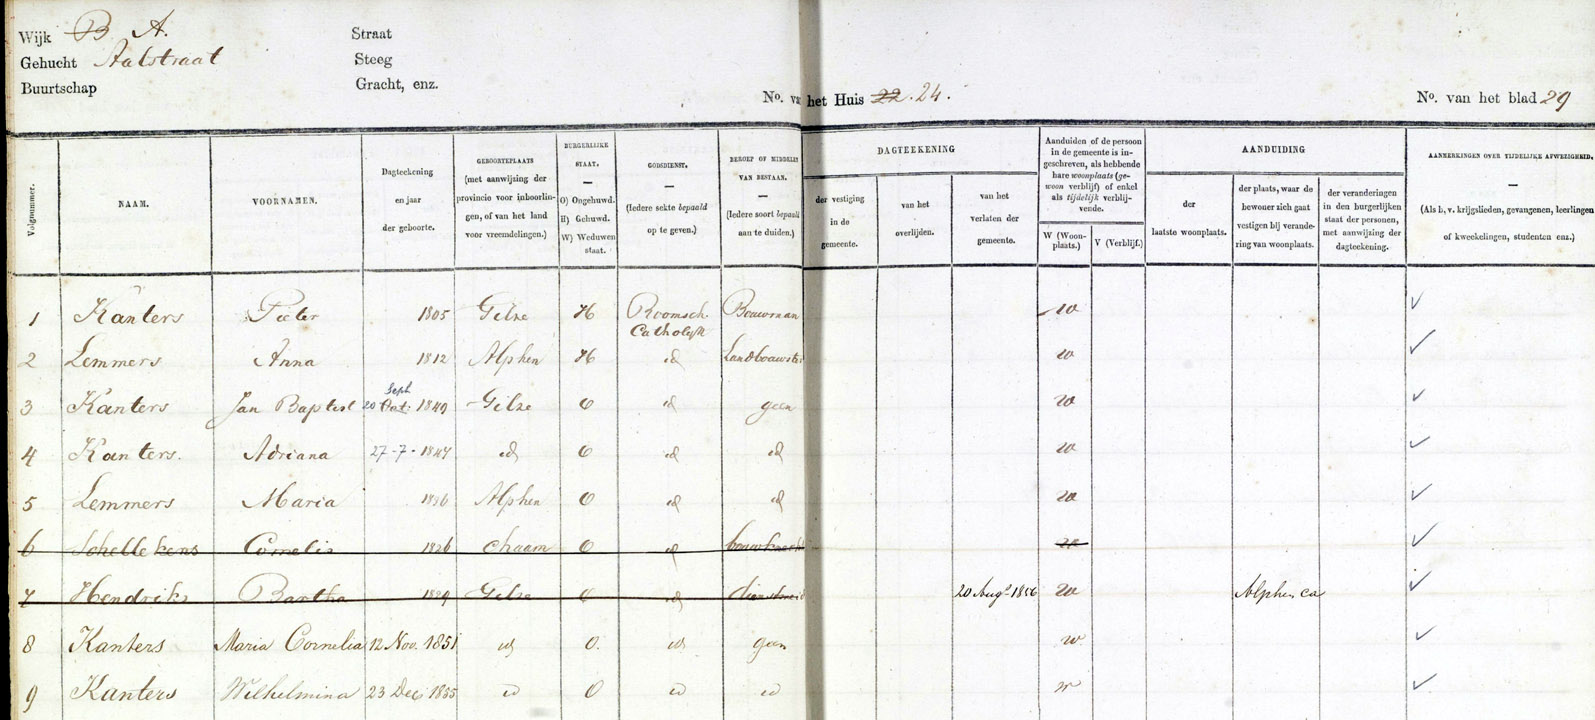 Wijk B A. Straat
Gehucht Aalstraat Steeg
Buurtschap Gracht, enz.
No. va het Huis 22. 24. No. van het blad 29
Volgnummer.
NAAM.
VOORNAMEN.
Dagteekening
en jaar
der geboorte.
GEBOORTEPLAATS
(met aanwijzing der
provincie voor inboorlin-
gen, of van het land
voor vreemdelingen.)
BURGERLIJKE
STAAT.
O) Ongehuwd.
H) Gehuwd.
W) Weduwen
staat.
GODSDIENST.
(Iedere sekte bepaald
op te geven.)
BEROEP OF MIDDELEN
VAN BESTAAN.
(Iedere soort bepaald
aan te duiden.)
DAGTEEKENING
der vestiging
in de
gemeente.
van het
overlijden.
van het
verlaten der
gemeente.
Aanduiden of de persoon
in de gemeente is in-
geschreven, als hebbende
hare woonplaats (ge-
woon verblijf) of enkel
als tijdelijk verblij-
vende.
W (Woon-
plaats.)
V (Verblijf.)
AANDUIDING
der
laatste woonplaats.
der plaats, waar de
bewoner zich gaat
vestigen bij verande-
ring van woonplaats.
der veranderingen
in den burgerlijken
staat der personen,
met aanwijzing der
dagteekening.
AANMERKINGEN OVER TIJDELIJKE AFWEZIGHEID.
(Als b. v. krijgslieden, gevangenen, leerlingen
of kweekelingen, studenten enz.)
1 Kanters Pieter 1805 Gilze H Roomsch Bouwman w
Catholijk
2 Lemmers Anna 1812 Alphen H id Landbouwster w
Sept
3 Kanters Jan Baptist 20 Oct: 1849 Gilze O id geen w
4 Kanters. Adriana 27-7-1847 id O id id w
5 Lemmers Maria Alphen O id id w
6 Schellekens Cornelis 1826 Chaam O id bouwknecht w
7 Hendriks Bartha 1829 Gilze O id dienstmeid 20 Augs 1856 w Alphen ca
8 Kanters Maria Cornelia 12 Nov. 1851 id O. id geen w
9 Kanters Wilhelmina 23 Dec 1855 id O id id w